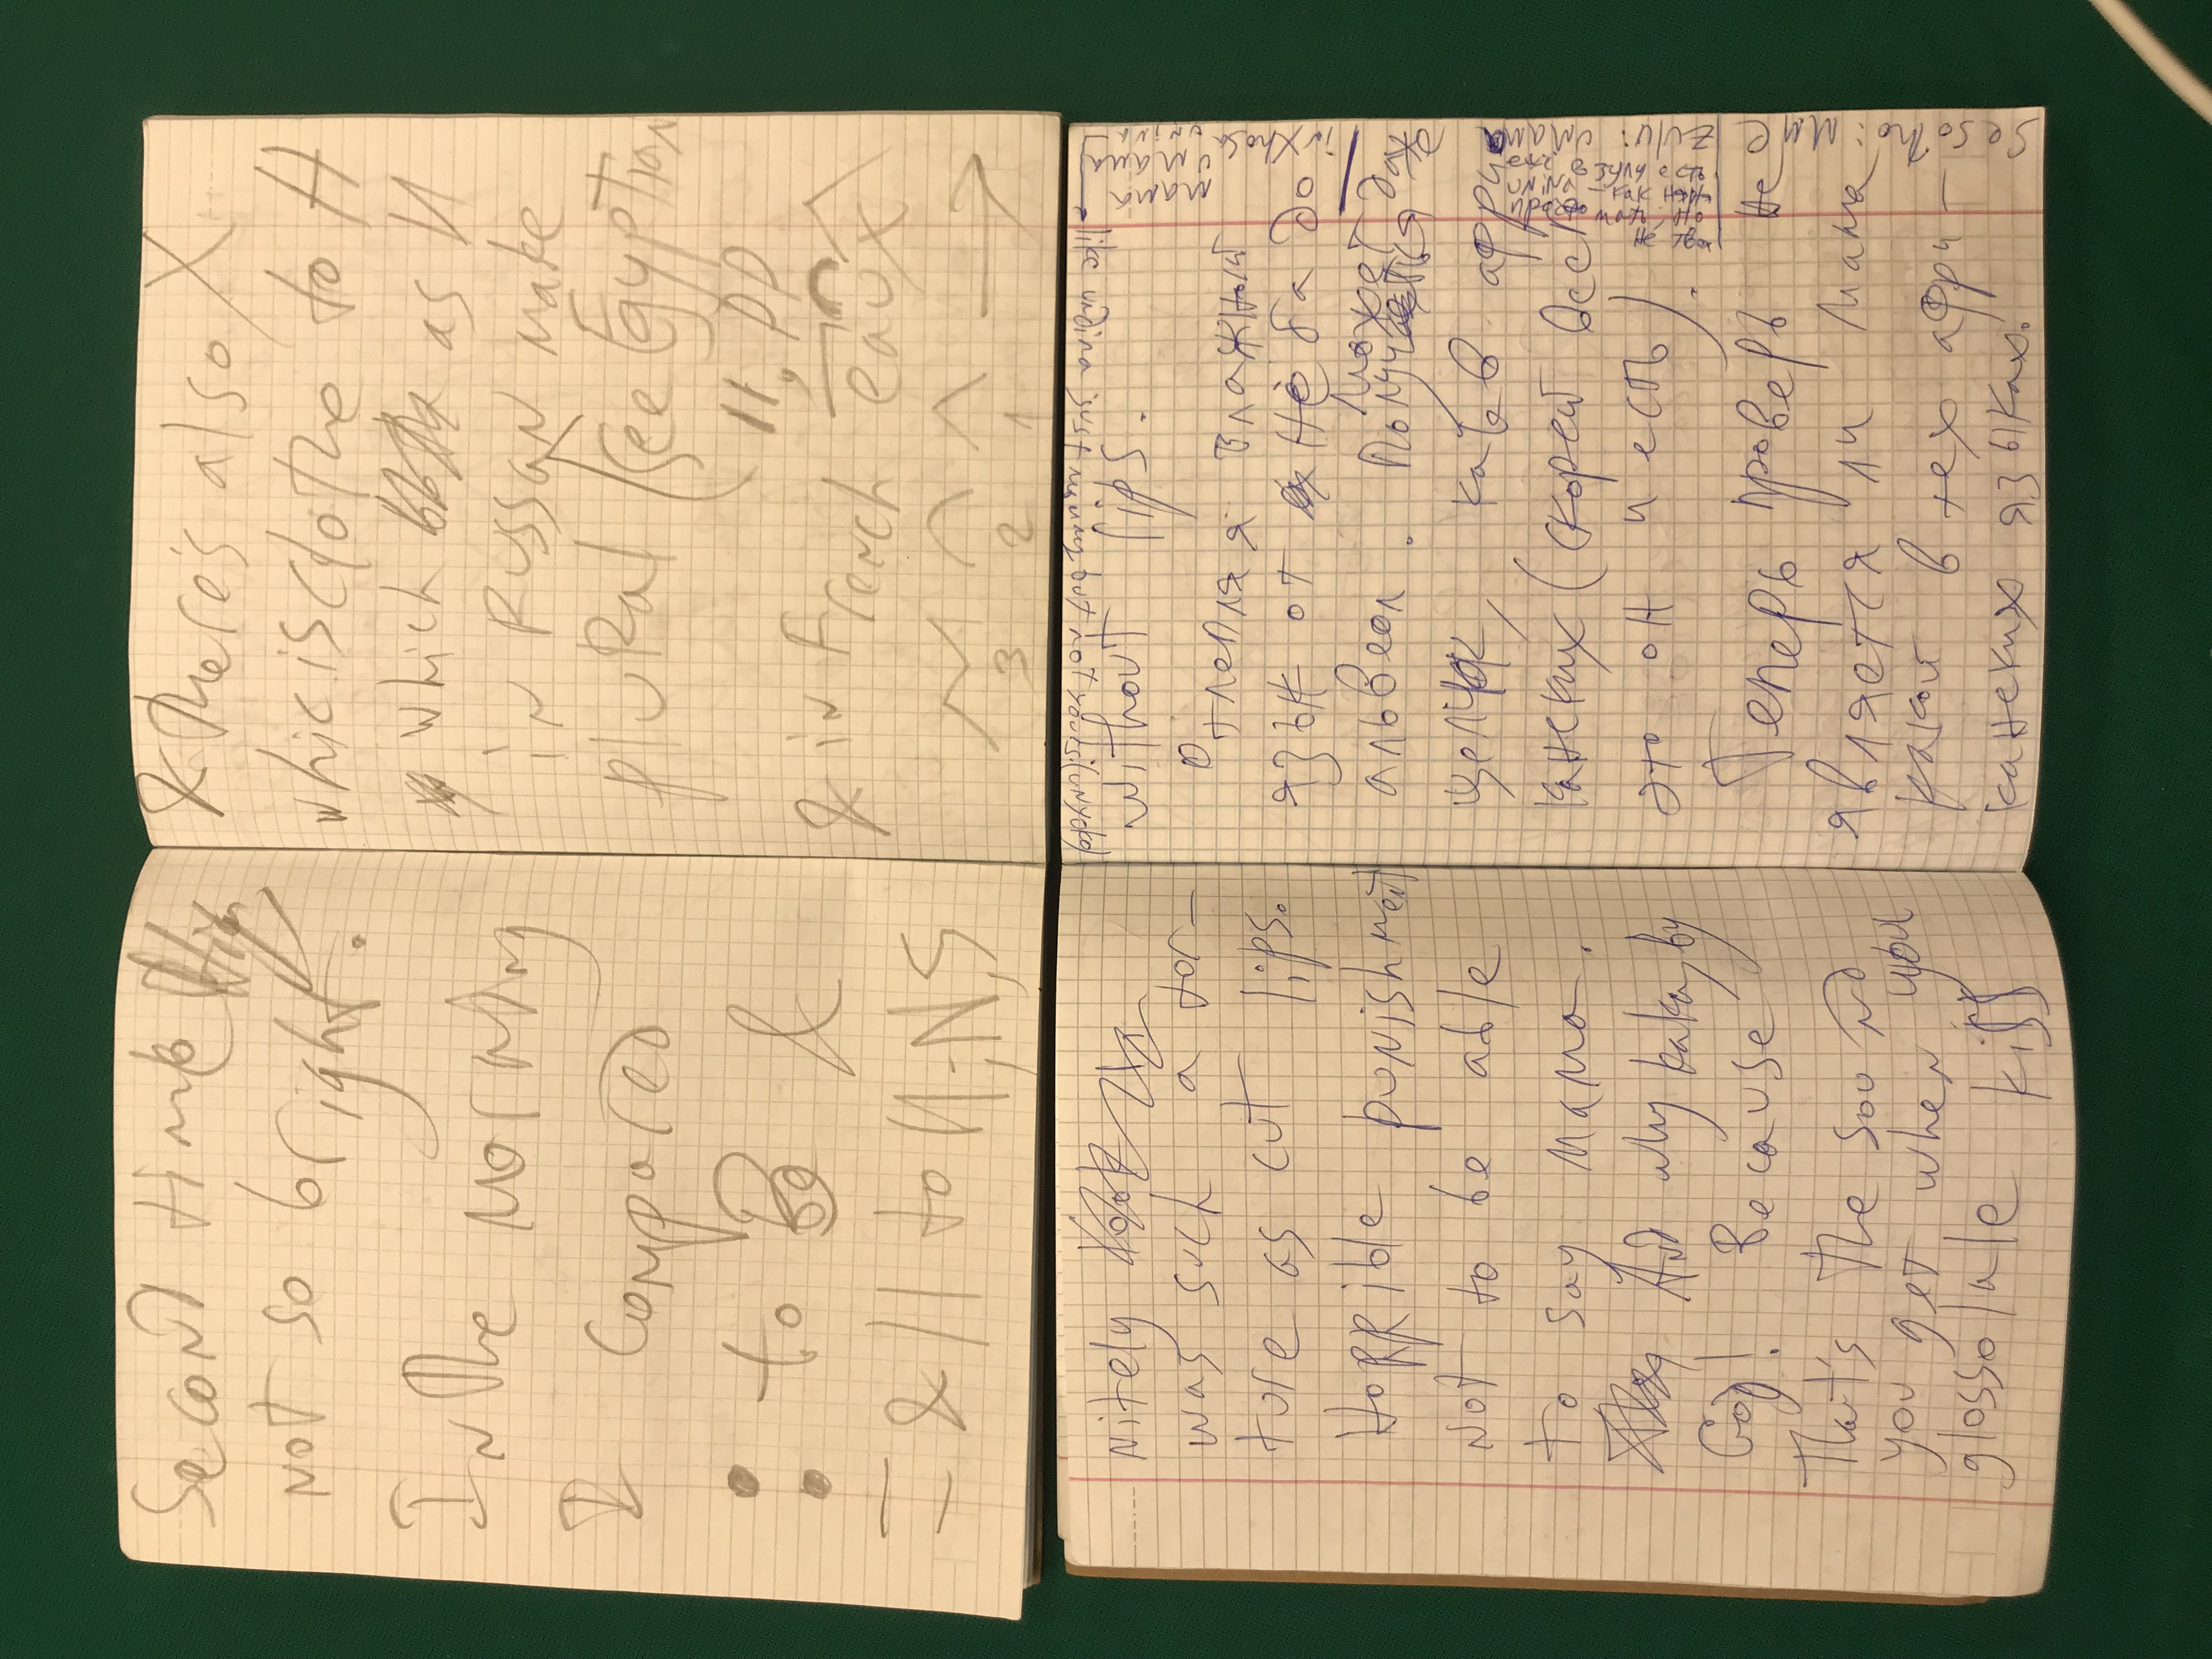 Second time
not so bright.
In the morning
I compared
: to B &
= & // to И, N, S
& there's also X
whic is clothe to H
which as И
in Russan make
pluRal (see Egyptian
\\, pp
& in French eaux
3 2 1 →
nitely
was such a tor-
ture as cut lips.
Horrible punishment
not to be able
to say mama.
And why kaka, by
God! Because
That's the sound
you get when you
glossolale kiss
like undina just mouing but not you
without lips.
Отлепляя влажный
язык от нёба до
альвеол. Получ может даже
щелчок, как в афри
канских (скорей всег
это он и есть).
Теперь проверь не
является ли мама
какой в тех афри-
канских языках.
in Xhosa umama
zulu: umama
Sesotho: mme